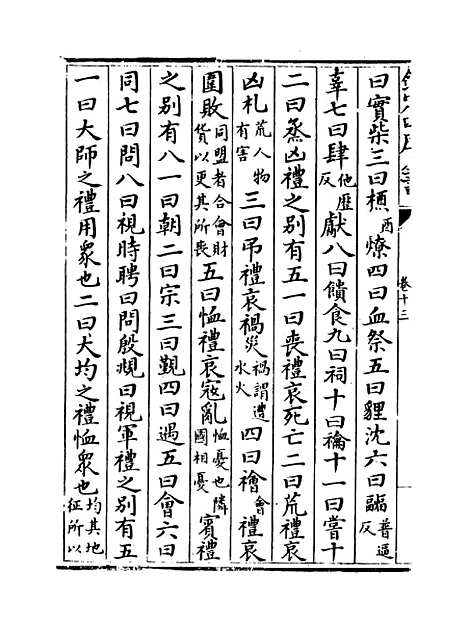 卷十三
曰實柴三曰槱酉燎四曰血祭五曰貍沈六曰疈普逼反
辜七曰肆他歴反獻八曰饋食九曰祠十曰禴十一曰嘗十
二曰烝凶禮之别有五一曰喪禮哀死亡二曰荒禮哀
凶札荒人物有害三曰吊禮哀禍災禍謂遭水火四曰禬會禮哀
圍敗同盟者合會財貨以更其所喪五曰恤禮哀寇亂恤憂也隣國相憂賓禮
之别有八一曰朝二曰宗三曰覲四曰遇五曰會六曰
同七曰問八曰視時聘曰問殷覜曰視軍禮之别有五
一曰大師之禮用衆也二曰大均之禮恤衆也均其地征所以